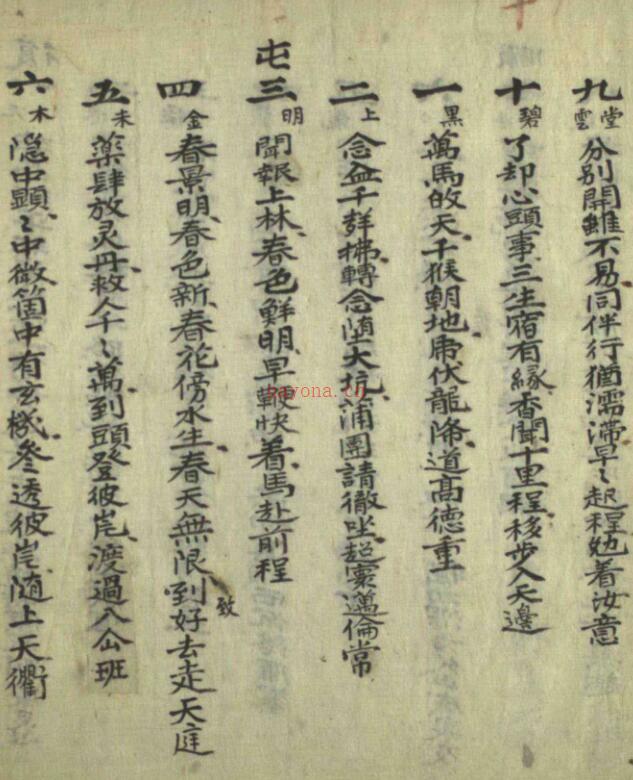 九 堂雲 分別開雖不易同伴行猶濡滯早〻起程勉着汝意
十 碧 了却心頭事三生宿有緣香聞十里程移步入天邊
一 黑 萬馬的天千猴朝地馬伏龍降道高德重
二 上 念企千群拂轉念墮大坑蒲團請徹坐超寰邁倫常
屯
三 明 聞報上林春色鮮明早鞭快着馬赴前程
四 金 春景明春色新春花傍水生春天無限到好去走天庭
致
五 未 藥肆放灵丹救人千〻萬到頭登彼岸渡過八仙班
六 木 隐中顕〻中微箇中有玄機參透彼岸随上天衢
kayona.cn